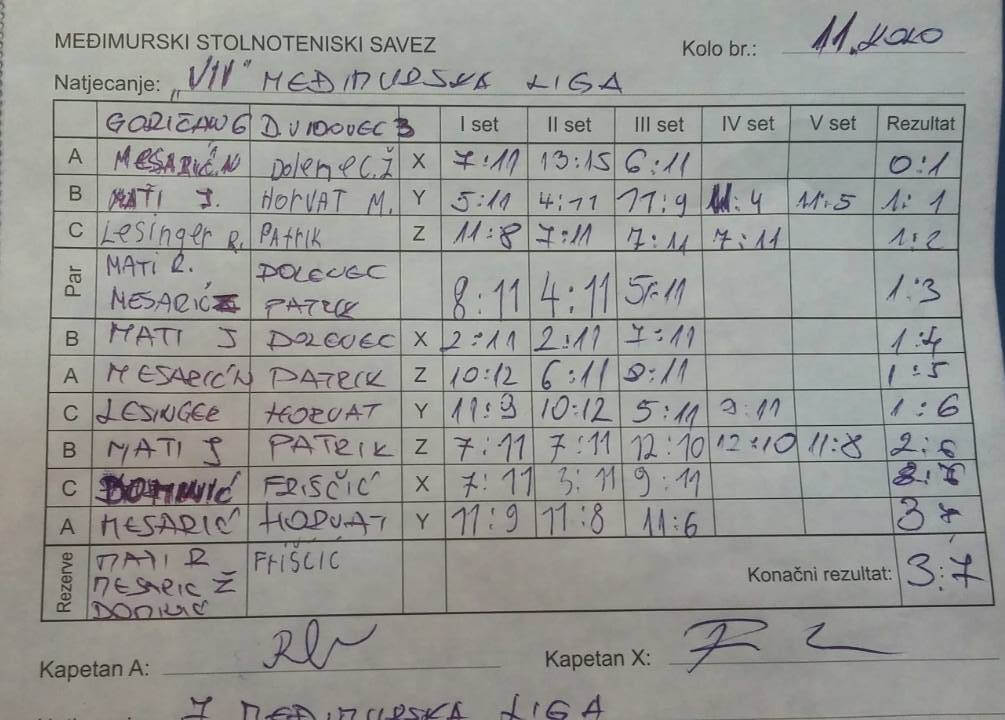 MEĐIMURSKI STOLNOTENISKI SAVEZ
Kolo br.: 11. KOLO
Natjecanje: „VII" MEĐIMURSKA LIGA
GORIČAN 6 D. VIDOVEC 3 I set II set III set IV set V set Rezultat
A MESARIĆ N Dolenec Ž X 7:11 13:15 6:11 0:1
B MATI J. HORVAT M. Y 5:11 4:11 11:9 11:4 11:5 1:1
C Lesinger R. PAtRIK Z 11:8 7:11 7:11 7:11 1:2
Par MATI R. DOLEVEC
MESARIĆ Ž PATRIK 8:11 4:11 5:11 1:3
B MATI J DOLEVEC X 2:11 2:11 7:11 1:4
A MESARIĆ N PATRIK Z 10:12 6:11 8:11 1:5
C LESINGER HORVAT Y 11:9 10:12 5:11 9:11 1:6
B MATI J PATRIK Z 7:11 7:11 12:10 12:10 11:8 2:6
C FRIŠČIĆ X 7:11 3:11 9:11
A MESARIĆ HORVAT Y 11:9 11:8 11:6 3
Rezerve MATI R FRIŠCIC
MESARIC Ž
DOMINIĆ
Konačni rezultat: 3:7
Kapetan A:
Kapetan X:
MEĐIMURSKA LIGA